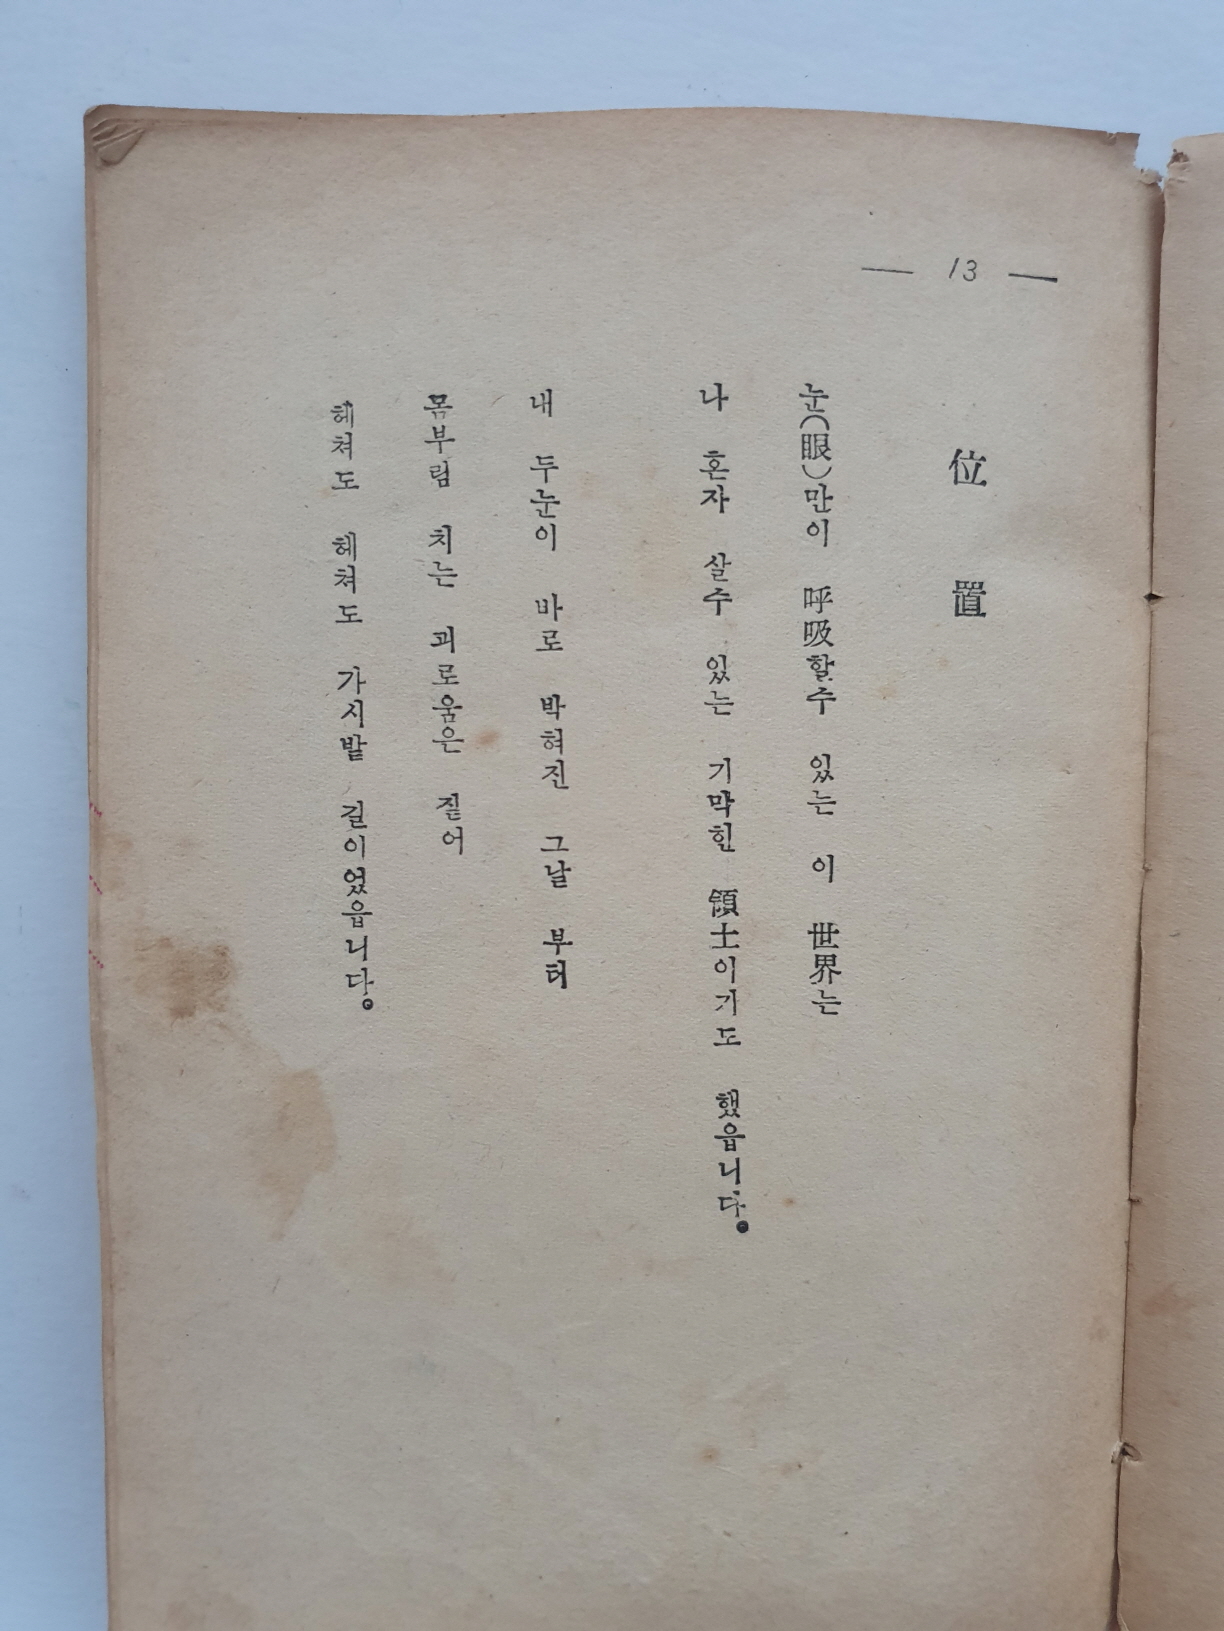 — 13 —
位置
눈(眼)만이 呼吸할수 있는 이 世界는
나 혼자 살수 있는 기막힌 領土이기도 했읍니다。
내 두눈이 바로 박혀진 그날 부터
몸부림 치는 괴로움은 짙어
헤쳐도 헤쳐도 가시밭 길이었읍니다。